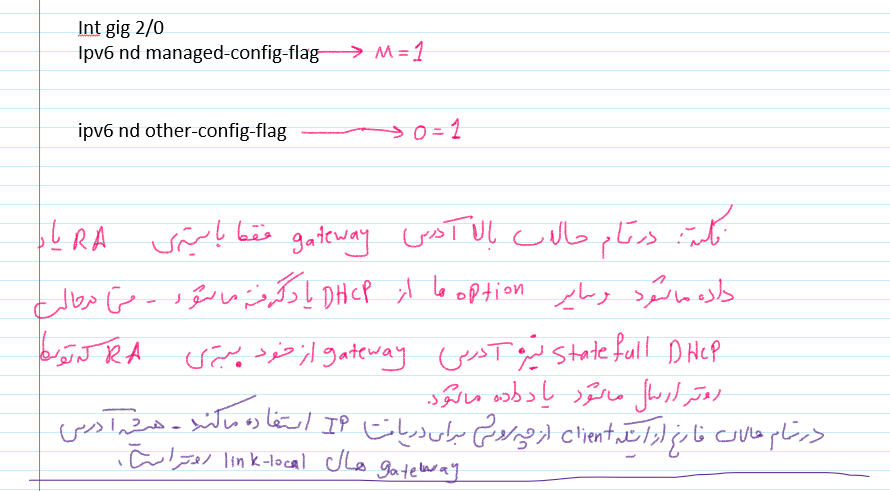 Int gig 2/0
Ipv6 nd managed-config-flag → M=1
ipv6 nd other-config-flag → O=1
نکته: در تمام حالات بالا آدرس gateway فقط با بسته‌ی RA یاد
داده می‌شود و سایر option ها از DHCP یاد گرفته می‌شود - حتی در حالت
Statefull DHCP نیز آدرس gateway از خود بسته‌ی RA که توسط
روتر ارسال می‌شود یاد داده می‌شود.
در تمام حالات فارغ از اینکه client از چه روشی برای دریافت IP استفاده می‌کند - همیشه آدرس
gateway همان link-local روتر است.